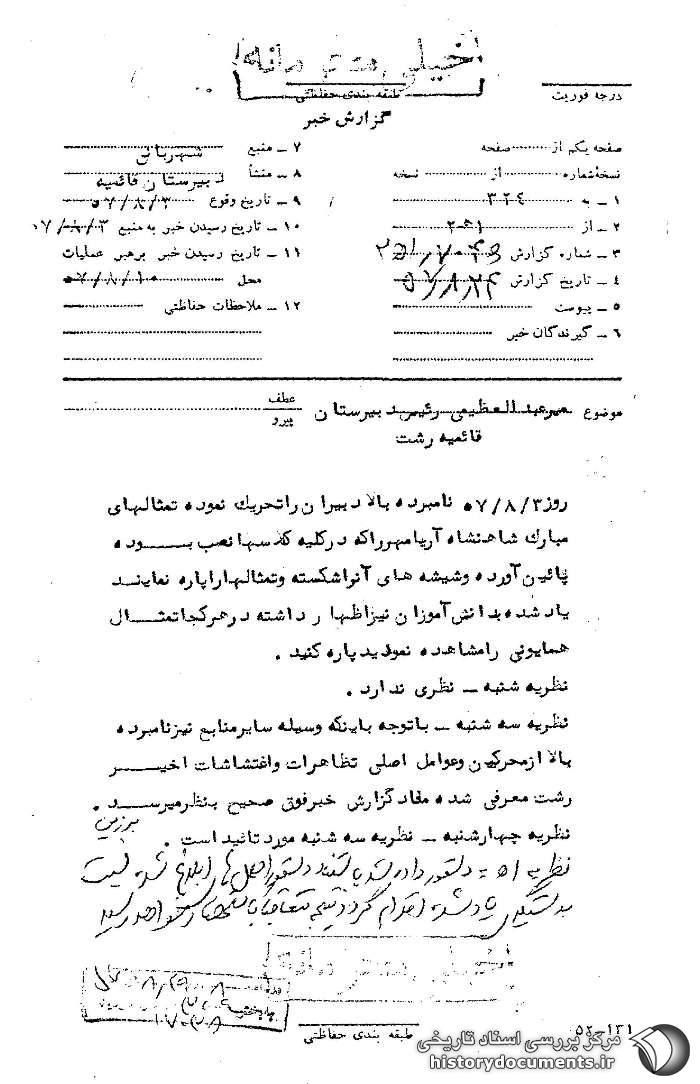 خیلی محرمانه
طبقه بندی حفاظتی
درجه فوریت
گزارش خبر
صفحه یکم از صفحه
نسخه‌شماره از نسخه
۱ - به ۳۲۴
۲ - از
۳ - شماره گزارش
۴ - تاریخ گزارش
۵ - پیوست
۶ - گیرندگان خبر
۷ - منبع شهربانی
۸ - منشأ دبیرستان قائمیه
۹ - تاریخ وقوع ۵۷/۸/۳
۱۰ - تاریخ رسیدن خبر به منبع ۵۷/۸/۳
۱۱ - تاریخ رسیدن خبر برهبر عملیات
محل ۵۷/۸/۱۰
۱۲ - ملاحظات حفاظتی
موضوع میرعبدالعظیمی رئیس دبیرستان
قائمیه رشت
عطف
پیرو
روز ۵۷/۸/۳ نامبرده بالا دبیران را تحریک نموده تمثالهای
مبارک شاهنشاه آریامهر راکه درکلیه کلاسها نصب بوده
پائین آورده وشیشه های آنرا شکسته وتمثالها را پاره نمایند
یاد شده بدانش‌آموزان نیز اظها ر داشته درهرکجا تمثال
همایونی رامشاهده نمودید پاره کنید .
نظریه شنبه - نظری ندارد .
نظریه سه شنبه - باتوجه باینکه وسیله سایر منابع نیز نامبرده
بالا از محرکین وعوامل اصلی تظاهرات واغتشاشات اخیر
رشت معرفی شده مفاد گزارش خبرفوق صحیح بنظر میرسد .
نظریه چهارشنبه - نظریه سه شنبه مورد تائید است . برزین
نظریه دستور داده شد
خیلی محرمانه
طبقه بندی حفاظتی
۵۲-۱۳۱
مرکز بررسی اسناد تاریخی
historydocuments.ir